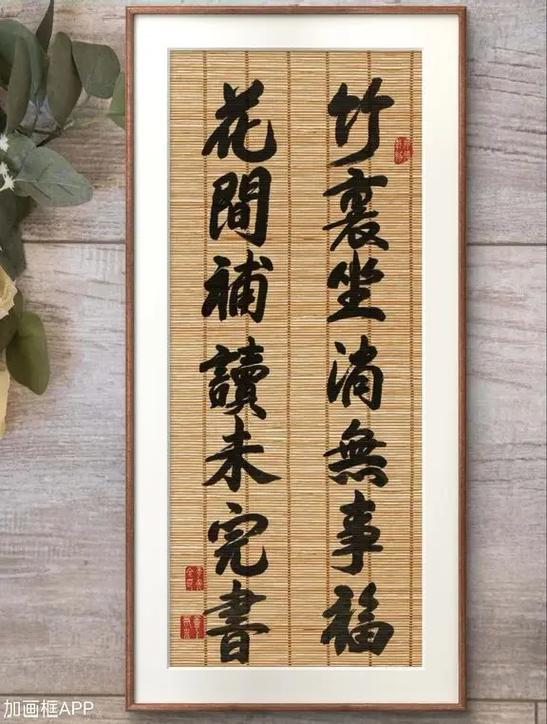 竹裏坐消無事福
花間補讀未完書
加画框APP